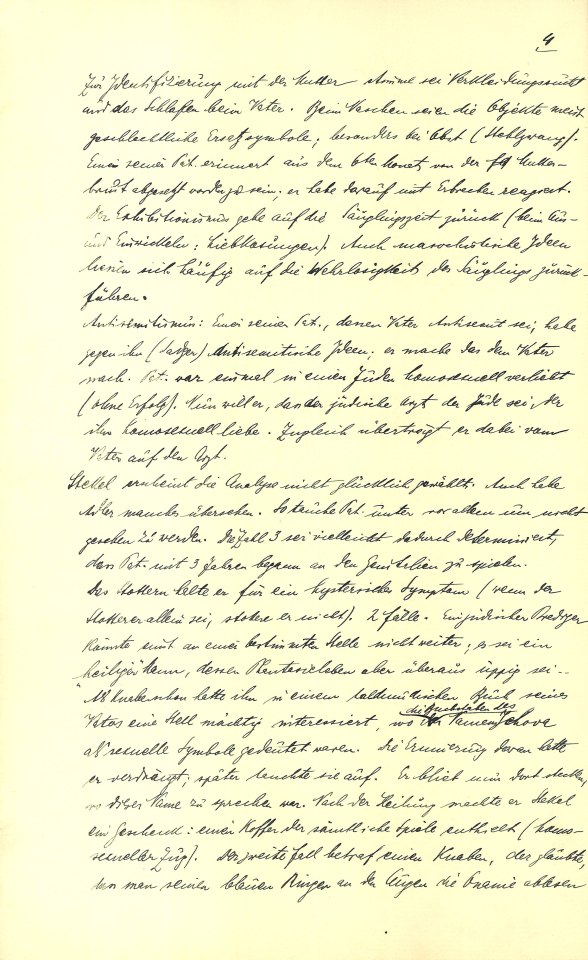 4
Zur Identifizierung mit der Mutter stimme sei Verkleidungssucht
und das Schlafen beim Vater. Beim Naschen seien die Objekte meist
geschlechtliche Ersatzsymbole; besonders bei Obst (Stehlzwang).
Einer seiner Pat. erinnert aus dem 6ten Monat von der Mutter-
brust abgesetzt worden zu sein; er habe darauf mit Erbrechen reagiert.
Der Exhibitionismus gehe auf die Säuglingszeit zurück (beim Aus-
und Einwickeln: Liebkosungen). Auch masochistische Ideen
liessen sich häufig auf die Wehrlosigkeit des Säuglings zurück-
führen.
Antisemitismus: Einer seiner Pat., dessen Vater Antisemit sei, habe
gegen ihn (Sadger) antisemitische Ideen; er mache das dem Vater
nach. Pat. war einmal in einen Juden homosexuell verliebt
(ohne Erfolg). Nun will er, dass der jüdische Arzt der Jude sei, der
ihn homosexuell liebe. Zugleich überträgt er dabei vom
Vater auf den Arzt.
Stekel erscheint die Analyse nicht glücklich gewählt. Auch habe
Adler manches übersehen. So tauche Pat. unter vor allem um nicht
gesehen zu werden. Die Zahl 3 sei vielleicht dadurch determiniert,
dass Pat. mit 3 Jahren begann an den Genitalien zu spielen.
Das Stottern halte er für ein hysterisches Symptom (wenn der
Stotterer allein sei, stottere er nicht). 2 Fälle. Ein jüdischer Prediger
konnte mit an einer bestimmten Stelle nicht weiter; es sei ein
heiliger Mann, dessen Phantasieleben aber überaus üppig sei.-
Als Knabe schon hatte ihn in einem talmudischen Buch seines
die Buchstaben des
Vaters eine Stelle mächtig interessiert, wo Namens Jehova
als sexuelle Symbole gedeutet waren. Die Erinnerung daran hatte
er verdrängt; später tauchte sie auf. Er blieb nun dort stecken,
wo dieser Name zu sprechen war. Nach der Heilung machte er Stekel
ein Geschenk: einen Koffer der sämtliche Spiele enthielt (homo-
sexueller Zug). Der zweite Fall betraf einen Knaben, der glaubte,
dass man seinen blauen Ringen an den Augen die Onanie ablesen